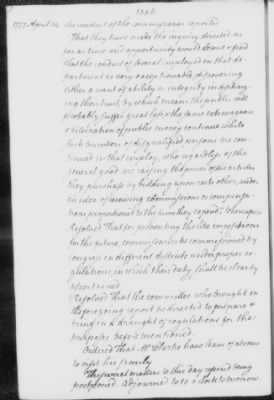 1346
1777 April 14. the conduct of the commissaries reported
That they have made the inquiry directed as
far as time and opportunity would about afford
that the conduct of several employed in that de-
partment is very exceptionable, discovering
either a want of ability or integrity in dischar-
ging their trust, by which means the public will
probably suffer great loss, the same extravagant
of public money continue while
such numbers of disqualified persons are con-
tinued in that employ, who regardless of the
general good are raising the prices of the articles
they purchase by bidding upon each other, under
an idea of receiving commissions or compensa-
tions proportioned to the sums they expend. Whereupon
Resolved That for preventing the like impositions
for the future, commissaries be commissioned by
congress in different districts under proper re-
gulations, in which their duty shall be clearly
ascertained
Resolved That the committee who brought in
the foregoing report be directed to prepare &
bring in a draught of regulations for the
purposes before mentioned.
Ordered That Mr Clarke have leave of absence
to visit his family
The several matters to this day referred being
postponed. Adjourned to 10 o Clock tomorrow